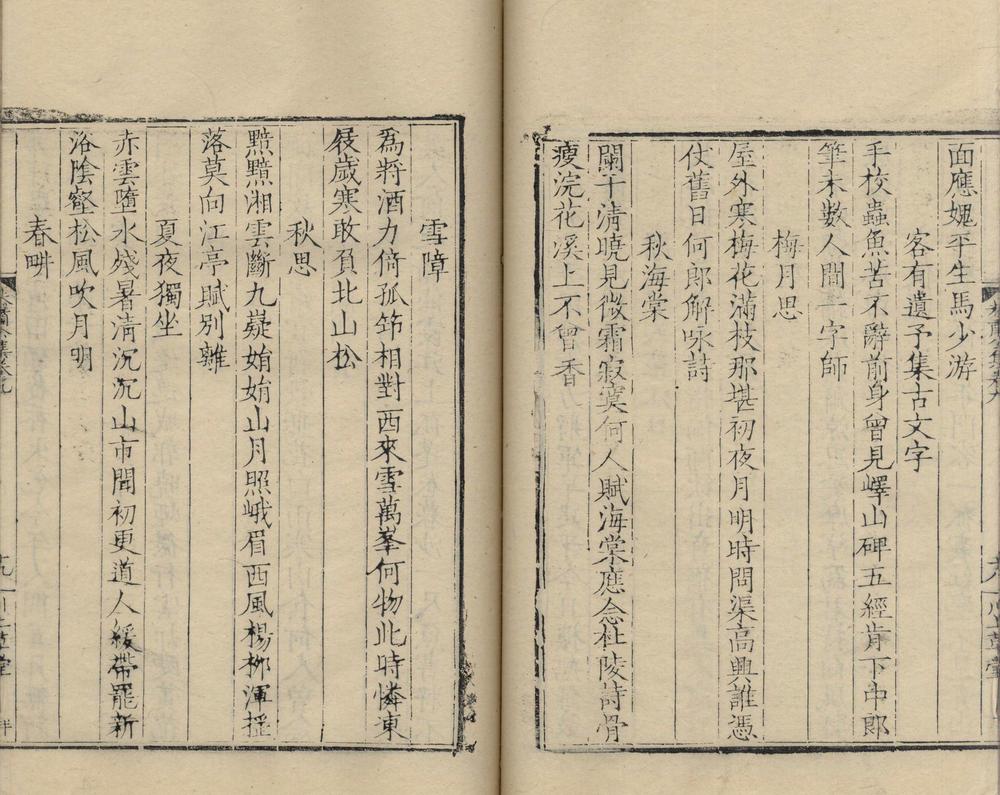 面應媿平生馬少游
客有遺予集古文字
手校蟲魚苦不辭前身曾見嶧山碑五經肯下中郎
筆未數人間一字師
梅月思
屋外寒梅花滿枝那堪初夜月明時問渠高興誰憑
仗舊日何郎解咏詩
秋海棠
闌干清曉見微霜寂寞何人賦海棠應念杜陵詩骨
瘦浣花溪上不曾香
雪障
爲將酒力倚孤筇相對西來雪萬峯何物此時憐凍
屐歲寒敢負北山松
秋思
黯黯湘雲斷九嶷娟娟山月照峨眉西風楊柳渾搖
落莫向江亭賦別離
夏夜獨坐
赤雲墮水殘暑清沉沉山市聞初更道人緩帶罷新
浴陰壑松風吹月明
春畊